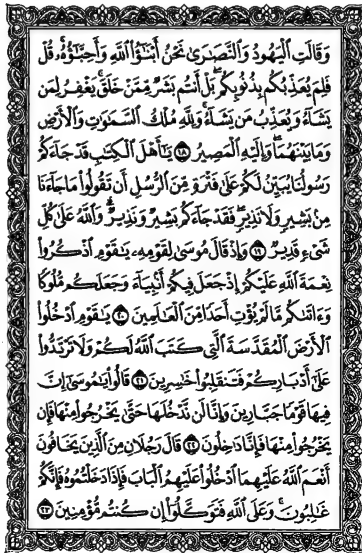 وَقَالَتِ ٱلْيَهُودُ وَٱلنَّصَٰرَىٰ نَحْنُ أَبْنَٰٓؤُا۟ ٱللَّهِ وَأَحِبَّٰٓؤُهُۥ ۚ قُلْ
فَلِمَ يُعَذِّبُكُم بِذُنُوبِكُم ۖ بَلْ أَنتُم بَشَرٌ مِّمَّنْ خَلَقَ ۚ يَغْفِرُ لِمَن
يَشَآءُ وَيُعَذِّبُ مَن يَشَآءُ ۚ وَلِلَّهِ مُلْكُ ٱلسَّمَٰوَٰتِ وَٱلْأَرْضِ
وَمَا بَيْنَهُمَا ۖ وَإِلَيْهِ ٱلْمَصِيرُ ١٨ يَٰٓأَهْلَ ٱلْكِتَٰبِ قَدْ جَآءَكُمْ
رَسُولُنَا يُبَيِّنُ لَكُمْ عَلَىٰ فَتْرَةٍ مِّنَ ٱلرُّسُلِ أَن تَقُولُوا۟ مَا جَآءَنَا
مِنۢ بَشِيرٍ وَلَا نَذِيرٍ ۖ فَقَدْ جَآءَكُم بَشِيرٌ وَنَذِيرٌ ۗ وَٱللَّهُ عَلَىٰ كُلِّ
شَىْءٍ قَدِيرٌ ١٩ وَإِذْ قَالَ مُوسَىٰ لِقَوْمِهِۦ يَٰقَوْمِ ٱذْكُرُوا۟
نِعْمَةَ ٱللَّهِ عَلَيْكُمْ إِذْ جَعَلَ فِيكُمْ أَنۢبِيَآءَ وَجَعَلَكُم مُّلُوكًا
وَءَاتَىٰكُم مَّا لَمْ يُؤْتِ أَحَدًا مِّنَ ٱلْعَٰلَمِينَ ٢٠ يَٰقَوْمِ ٱدْخُلُوا۟
ٱلْأَرْضَ ٱلْمُقَدَّسَةَ ٱلَّتِى كَتَبَ ٱللَّهُ لَكُمْ وَلَا تَرْتَدُّوا۟
عَلَىٰٓ أَدْبَارِكُمْ فَتَنقَلِبُوا۟ خَٰسِرِينَ ٢١ قَالُوا۟ يَٰمُوسَىٰٓ إِنَّ
فِيهَا قَوْمًا جَبَّارِينَ وَإِنَّا لَن نَّدْخُلَهَا حَتَّىٰ يَخْرُجُوا۟ مِنْهَا فَإِن
يَخْرُجُوا۟ مِنْهَا فَإِنَّا دَٰخِلُونَ ٢٢ قَالَ رَجُلَانِ مِنَ ٱلَّذِينَ يَخَافُونَ
أَنْعَمَ ٱللَّهُ عَلَيْهِمَا ٱدْخُلُوا۟ عَلَيْهِمُ ٱلْبَابَ فَإِذَا دَخَلْتُمُوهُ فَإِنَّكُمْ
غَٰلِبُونَ ۚ وَعَلَى ٱللَّهِ فَتَوَكَّلُوٓا۟ إِن كُنتُم مُّؤْمِنِينَ ٢٣